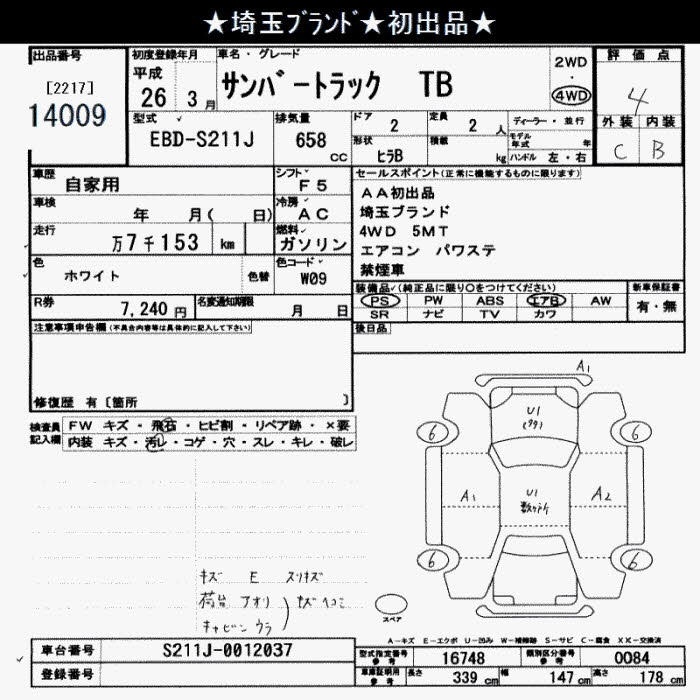 ★埼玉ブランド★初出品★
出品番号
[2217]
14009
初度登録年月
平成
26 3月
車名・グレード
サンバートラック TB
2WD
・
4WD
評価点
4
外装 内装
C B
型式
EBD-S211J
排気量
658
cc
ドア
2
定員
2 人
形状
ヒラB
積載
kg
ディーラー・並行
モデル年式 年
ハンドル 左・右
車歴
自家用
シフト
F5
車検
年 月( 日)
冷房
AC
走行
万7千153 km
燃料
ガソリン
色
ホワイト
色替
色コード
W09
R券
7,240 円
名変通知期限
月 日
セールスポイント(正常に機能するものに限ります)
AA初出品
埼玉ブランド
4WD 5MT
エアコン パワステ
禁煙車
装備品(純正品に限り○をつけてください)
PS PW ABS エアB AW
SR ナビ TV カワ
新車保証書
有・無
後日品
注意事項申告欄(不具合内容等は具体的に記入して下さい)
修復歴 有 [箇所 ]
検査員記入欄
FW キズ・飛石・ヒビ割・リペア跡・×要
内装 キズ・汚れ・コゲ・穴・スレ・キレ・破レ
A1
U1
6 6
A1
U1
A2
6 6
スペア
キズ E スリキズ
荷台 アオリ
キャビン ウラ
キズヘコミ
A−キズ E−エクボ U−凹み W−補修跡 S−サビ C−腐食 XX−交換済
車台番号
S211J-0012037
登録番号
型式指定番号
参考
16748
類別区分番号
参考
0084
車庫証明用
参考
長さ
339 cm
幅
147 cm
高さ
178 cm